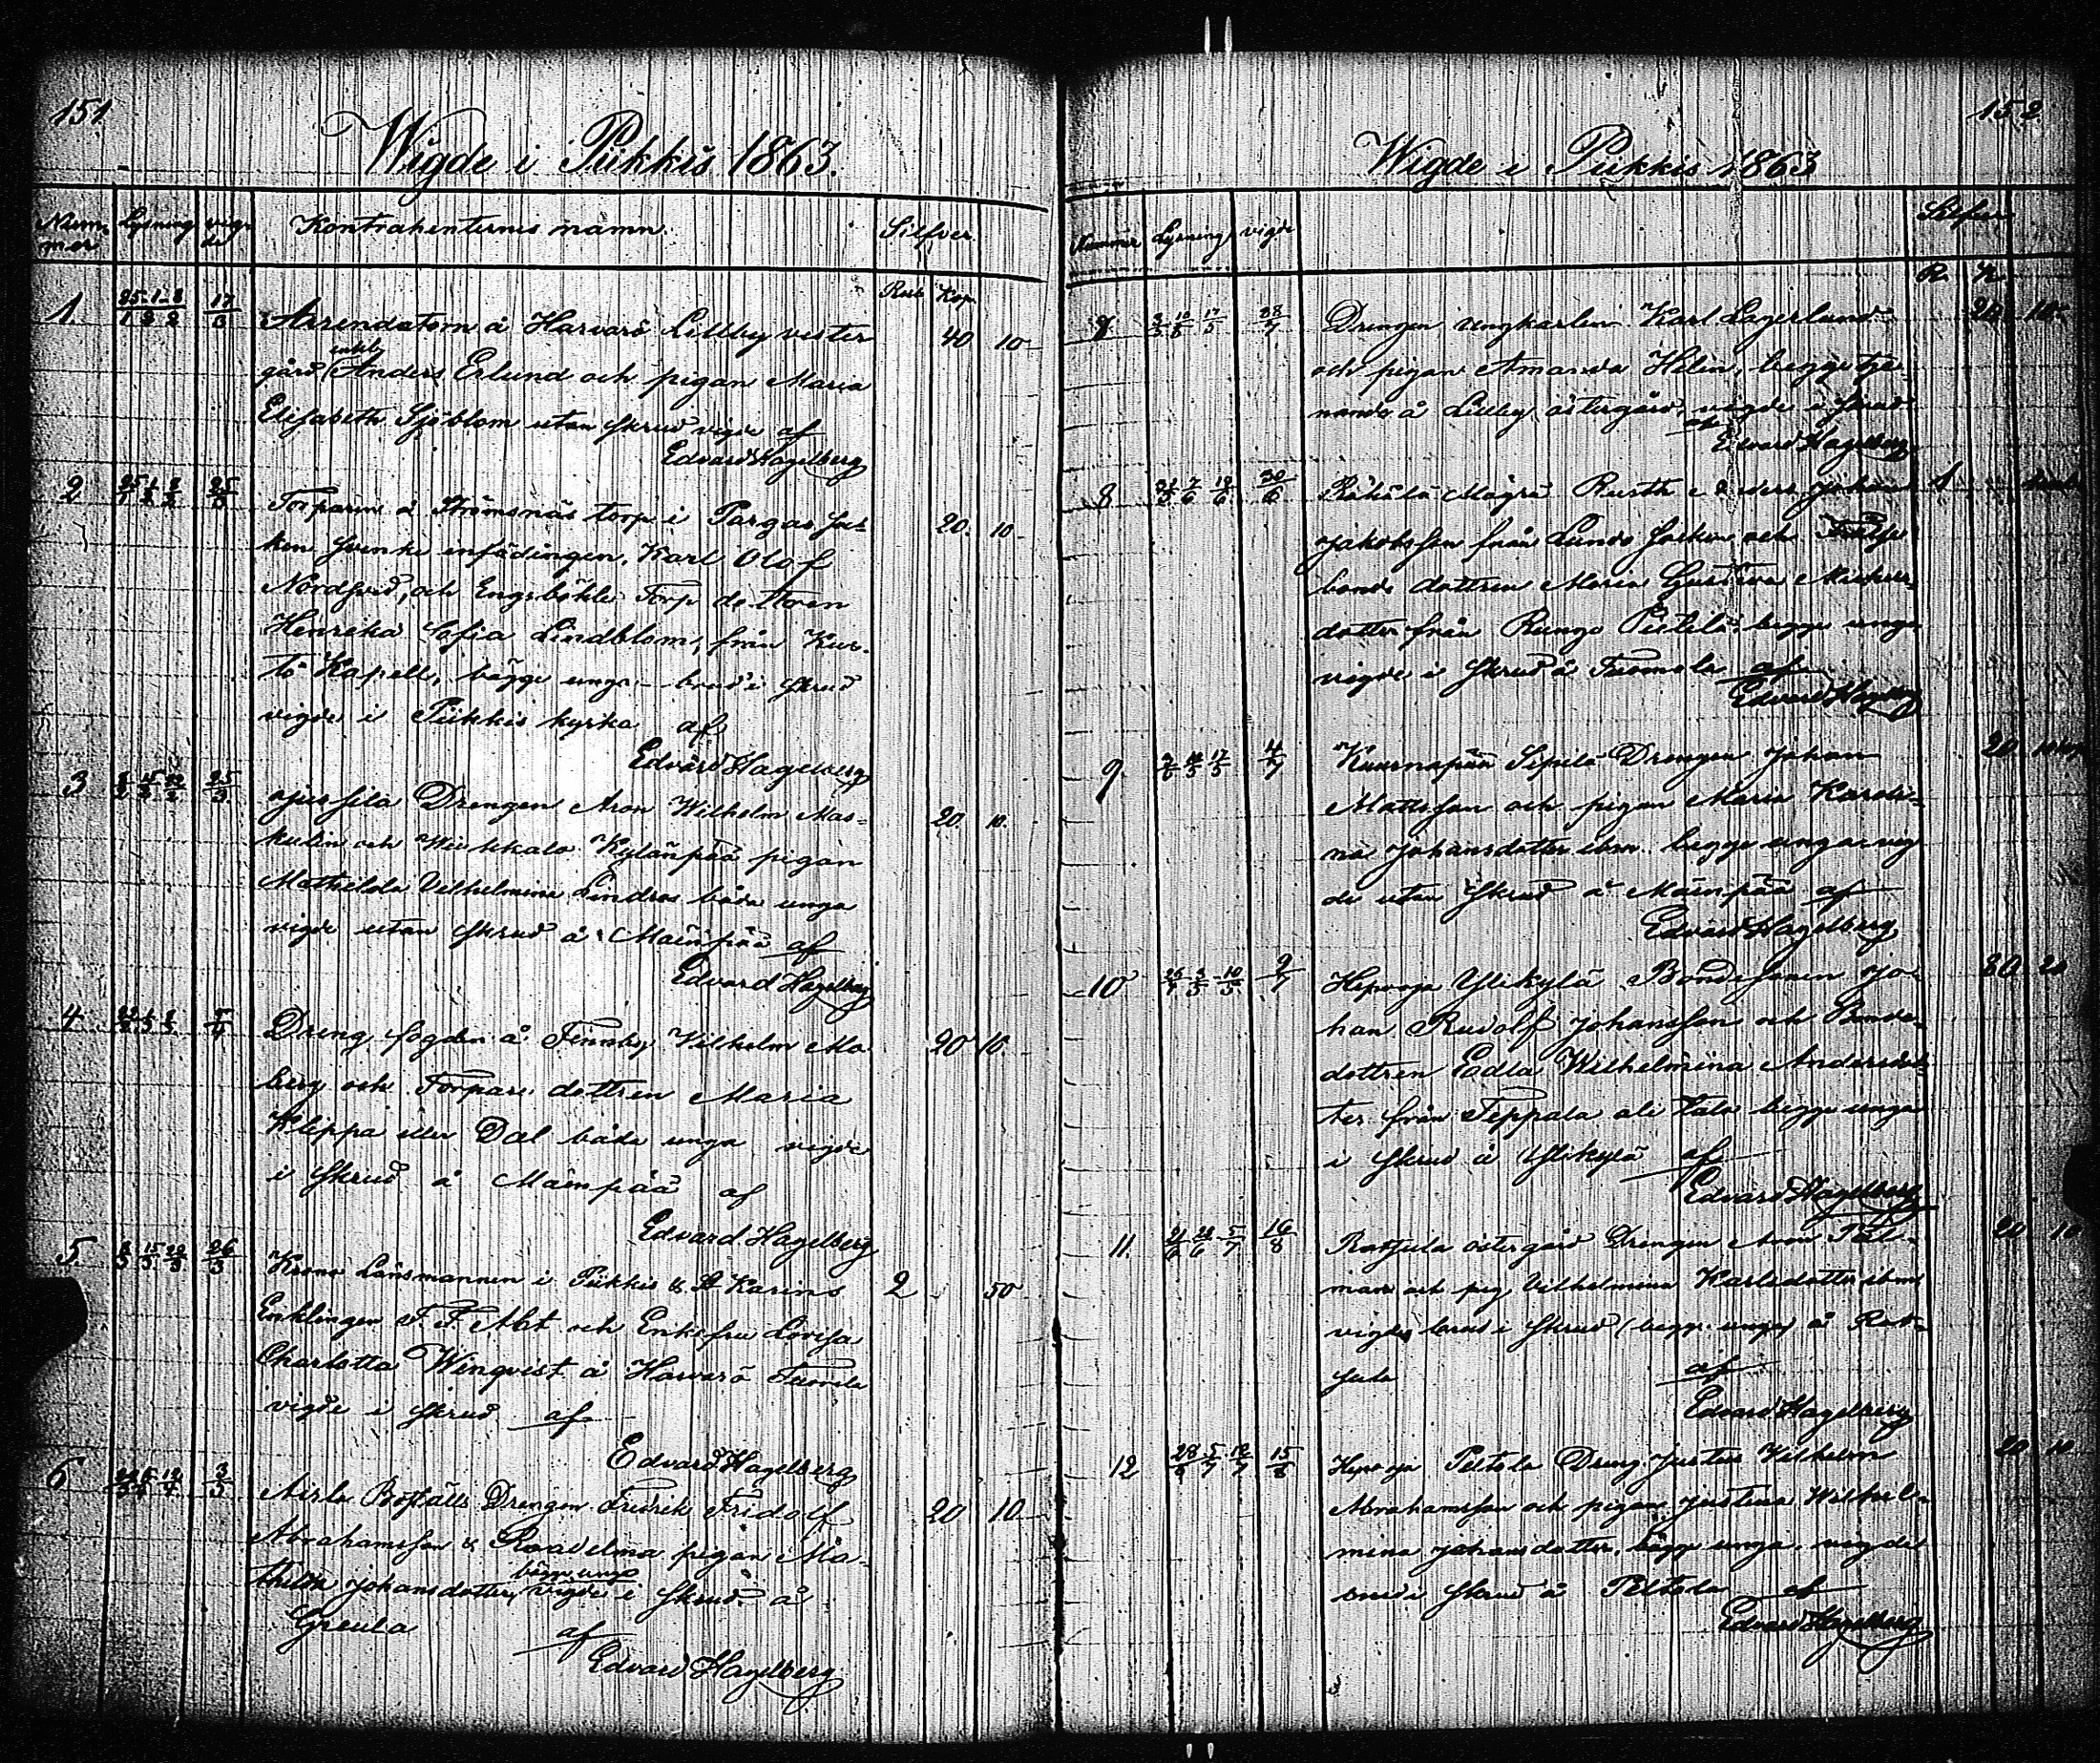 151
Wigde i Piikkis 1863.
Num-mer Lysning vigde Kontrahenternes namn. Silfver
Rub Kop
1. 25/1 1/2 8/2 17/3 Arrendatorn å Harvarö Lillby vester 40 10
enkel.
gård Anders Erlund och pigan Maria
Elisabeth Sjöblom utan skrud vigde af
Edvard Hagelberg
2 25/1 1/2 8/2 25/3 Torparen å Strömsnäs torp i Pargas soc- 20. 10
ken Svenke infödingen, Karl Olof
Nordsved, och Engsböhle Torp dottren
Henreka Sofia Lindblom, från Kus-
tö Kapell, bägge unga brud i skrud
vigde i Piikkis kyrka af
Edvard Hagelberg
3 8/2 15/2 22/2 25/3 Jussila Drengen Aron Wilhelm Mas- 20. 10.
kulin och Wiukkala Kylänpää pigan
Mathilda Vilhelmina Lindros båda unga
vigde utan skrud å Mäenpää af
Edvard Hagelberg
4 Dreng fogden å Finnby Vilhelm Mo 20 10.
berg och Torpare dottren Maria
Klippa eller Dal båda unga vigde
i skrud å Mäenpää af
Edvard Hagelberg
5. 8/3 15/3 22/3 26/3 Krono Länsmannen i Piikkis & St Karins 2 50
Enklingen F. F. Alit och Enkefru Lovisa
Charlotta Winqvist å Harvarö Tuorila
vigde i skrud af
Edvard Hagelberg
6 Boställs Drengen Fredrik Fridolf 20 10
Abrahamsson & Raadelma pigan Ma-
bägge unga
thilda Johansdotter, vigde i skrud å
Greula af
Edvard Hagelberg
152
Wigde i Piikkis 1863
Nummer Lysning vigde Silfver
R. K.
7. 3/5 10/5 17/5 28/7 Drengen ungkarlen Karl Lagerlund 20 10
och pigan Amanda Helin, begge tje-
nande å Lillby östergård, vigde i skrud
af
Edvard Hagelberg
8 30/6 Mägrä Rusth Johan 1
Jakobsson från Lundo socken och
bonde dottren Maria Gustava
dotter från Rungo Piutilä begge unga
vigde i skrud å Tuomola af
Edvard Hagelberg
9. 4/7 Kuurnapää Sipilä Drengen Johan 20 10
Mattsson och pigan Maria Karoli-
na Johansdotter ibm begge unga vig
de utan skrud å Mäenpää af
Edvard Hagelberg
10 3/5 10/5 9/7 Hepooja Ylikylä Bondesonen Jo- 80 20
han Rudolf Johansson och Bonde-
dottren Edla Wilhelmina Andersdot-
ter från Teppala ali Tala begge unga
i skrud å Ylikylä af
Edvard Hagelberg
11. 21/6 28/6 5/7 16/8 Rastsula östergård Drengen Aron Pål- 20 10
man och pig Vilhelmina Karlsdotter ibm
vigde, brud i skrud (begge unga) å Rat-
sula af
Edvard Hagelberg
12 28/6 5/7 12/7 15/8 Hepooja Peltola Dreng Justus Vilhelm 20 10
Abrahamsson och pigan Justina Wilhel-
mina Johansdotter, bägge unga, vigde
brud i skrud å Peltola af
Edvard Hagelberg